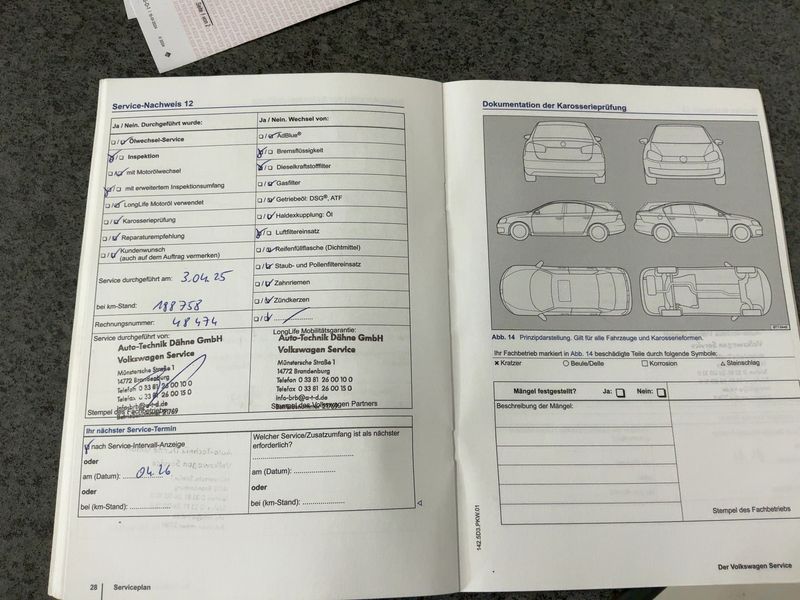 Seite 1 von 2
Service-Nachweis 12
Ja / Nein. Durchgeführt wurde:
Ölwechsel-Service
Inspektion
mit Motorölwechsel
mit erweitertem Inspektionsumfang
LongLife Motoröl verwendet
Karosserieprüfung
Reparaturempfehlung
Kundenwunsch
(auch auf dem Auftrag vermerken)
Service durchgeführt am: 3.04.25
bei km-Stand: 188 758
Rechnungsnummer: 48 474
Service durchgeführt von:
Auto-Technik Dähne GmbH
Volkswagen Service
Münstersche Straße 1
14772 Brandenburg
Telefon 0 33 81 26 00 10 0
Telefax 0 33 81 26 00 15 0
Info-brb@a-t-d.de
Stempel des Fachbetriebs
Ja / Nein. Wechsel von:
AdBlue®
Bremsflüssigkeit
Dieselkraftstofffilter
Gasfilter
Getriebeöl: DSG®, ATF
Haldexkupplung: Öl
Luftfiltereinsatz
Reifenfüllflasche (Dichtmittel)
Staub- und Pollenfiltereinsatz
Zahnriemen
Zündkerzen
LongLife Mobilitätsgarantie:
Auto-Technik Dähne GmbH
Volkswagen Service
Münstersche Straße 1
14772 Brandenburg
Telefon 0 33 81 26 00 10 0
Telefax 0 33 81 26 00 15 0
Info-brb@a-t-d.de
Stempel des Volkswagen Partners
Ihr nächster Service-Termin
nach Service-Intervall-Anzeige
oder
am (Datum): 04.26
oder
bei (km-Stand):
Welcher Service/Zusatzumfang ist als nächster
erforderlich?
am (Datum):
oder
bei (km-Stand):
28 Serviceplan
Dokumentation der Karosserieprüfung
Abb. 14 Prinzipdarstellung. Gilt für alle Fahrzeuge und Karosserieformen.
Ihr Fachbetrieb markiert in Abb. 14 beschädigte Teile durch folgende Symbole:
× Kratzer ○ Beule/Delle □ Korrosion △ Steinschlag
Mängel festgestellt? Ja: Nein:
Beschreibung der Mängel:
Stempel des Fachbetriebs
142.5D3.PKW.01
Der Volkswagen Service